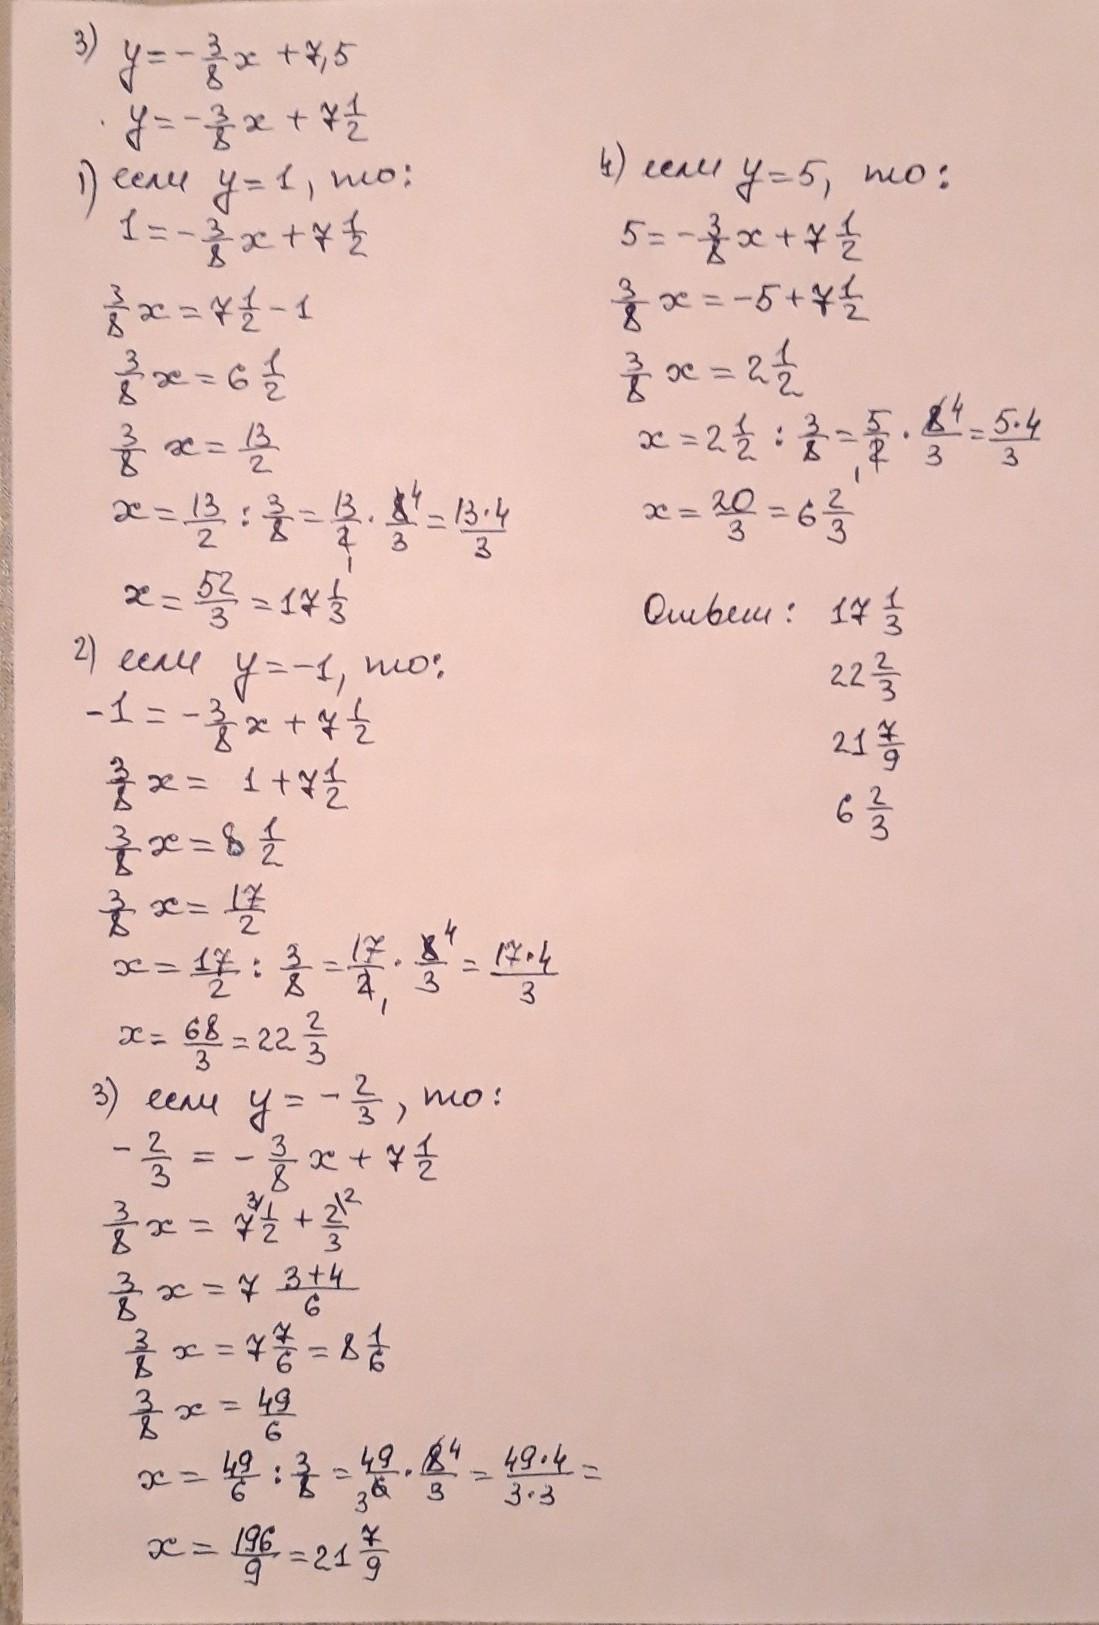 3) y = -3/8 x + 7,5
y = -3/8 x + 7 1/2
1) если y = 1, то:
1 = -3/8 x + 7 1/2
3/8 x = 7 1/2 - 1
3/8 x = 6 1/2
3/8 x = 13/2
x = 13/2 : 3/8 = 13/2 1 · 8/3 4 = 13·4/3
x = 52/3 = 17 1/3
2) если y = -1, то:
-1 = -3/8 x + 7 1/2
3/8 x = 1 + 7 1/2
3/8 x = 8 1/2
3/8 x = 17/2
x = 17/2 : 3/8 = 17/2 1 · 8/3 4 = 17·4/3
x = 68/3 = 22 2/3
3) если y = -2/3, то:
-2/3 = -3/8 x + 7 1/2
3/8 x = 7 3\ 1/2 + 2/3 \2
3/8 x = 7 3+4/6
3/8 x = 7 7/6 = 8 1/6
3/8 x = 49/6
x = 49/6 : 3/8 = 49/6 3 · 8/3 4 = 49·4/3·3 =
x = 196/9 = 21 7/9
4) если y = 5, то:
5 = -3/8 x + 7 1/2
3/8 x = -5 + 7 1/2
3/8 x = 2 1/2
x = 2 1/2 : 3/8 = 5/2 1 · 8/3 4 = 5·4/3
x = 20/3 = 6 2/3
Ответ: 17 1/3
22 2/3
21 7/9
6 2/3